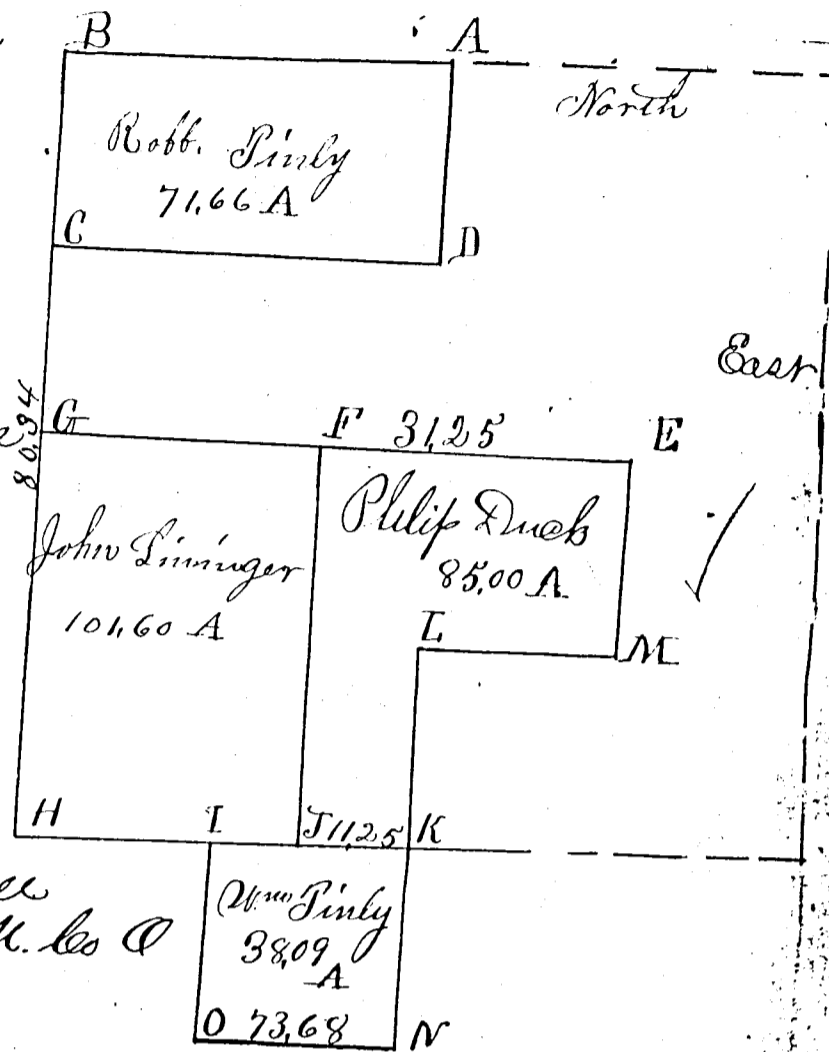 B A
North
Robb. Pinly
71.66 A
C D
East
80.94
G F 31,25 E
John Lininger
101,60 A
Philip Duck
85,00 A
L M
H I J 11,25 K
Wm Pinly
38,09
A
Co O
O 73,68 N